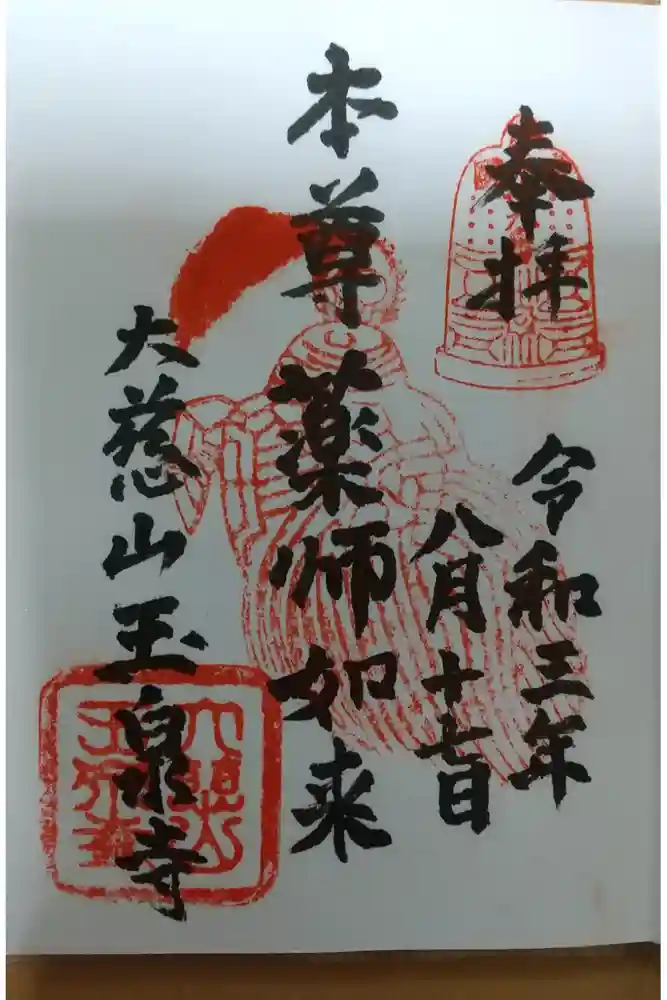 奉拝
令和三年
八月十七日
本尊薬師如来
大慈山玉泉寺